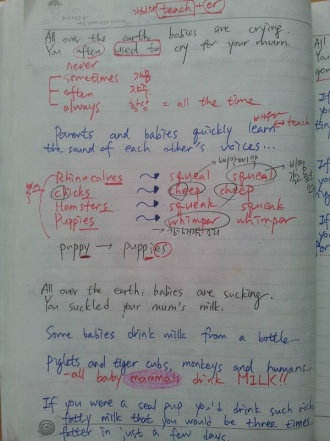 teach + er
All over the earth babies are crying.
You often used to cry for your mum.
never
sometimes 가끔
often 자주
always 항상 = all the time
Parents and babies quickly learn
↔ teach
the sound of each other's voices...
Rhino calves → squeal squeal
Chicks → cheep cheep
Hamsters → squeak squeak
Puppies → whimper whimper
puppy → puppies
All over the earth, babies are sucking.
You suckled your mum's milk.
Some babies drink milk from a bottle...
Piglets and tiger cubs, monkeys and humans...
- all baby mammals drink MILK!!
If you were a seal pup you'd drink such rich
fatty milk that you would be three times
fatter in just a few days.